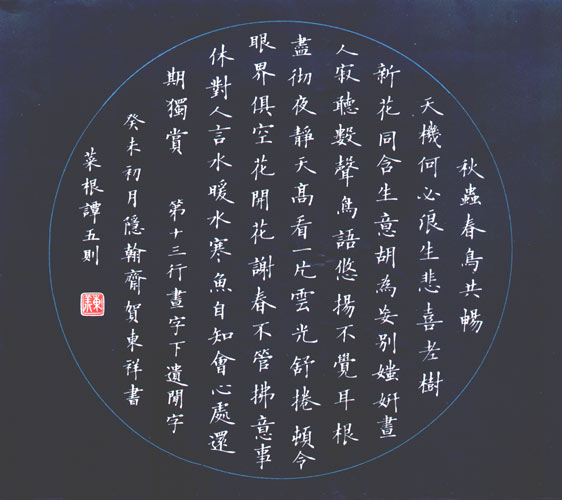 秋蟲春鳥共暢
天機何必浪生悲喜老樹
新花同含生意胡為妄別媸妍晝
人寂聽數聲鳥語悠揚不覺耳根
盡彻夜靜天高看一片雲光舒捲頓令
眼界俱空花開花謝春不管拂意事
休對人言水暖水寒魚自知會心處還
期獨賞 第十三行晝字下遺閒字
癸未初月隱翰齋賀東祥書
菜根譚五則